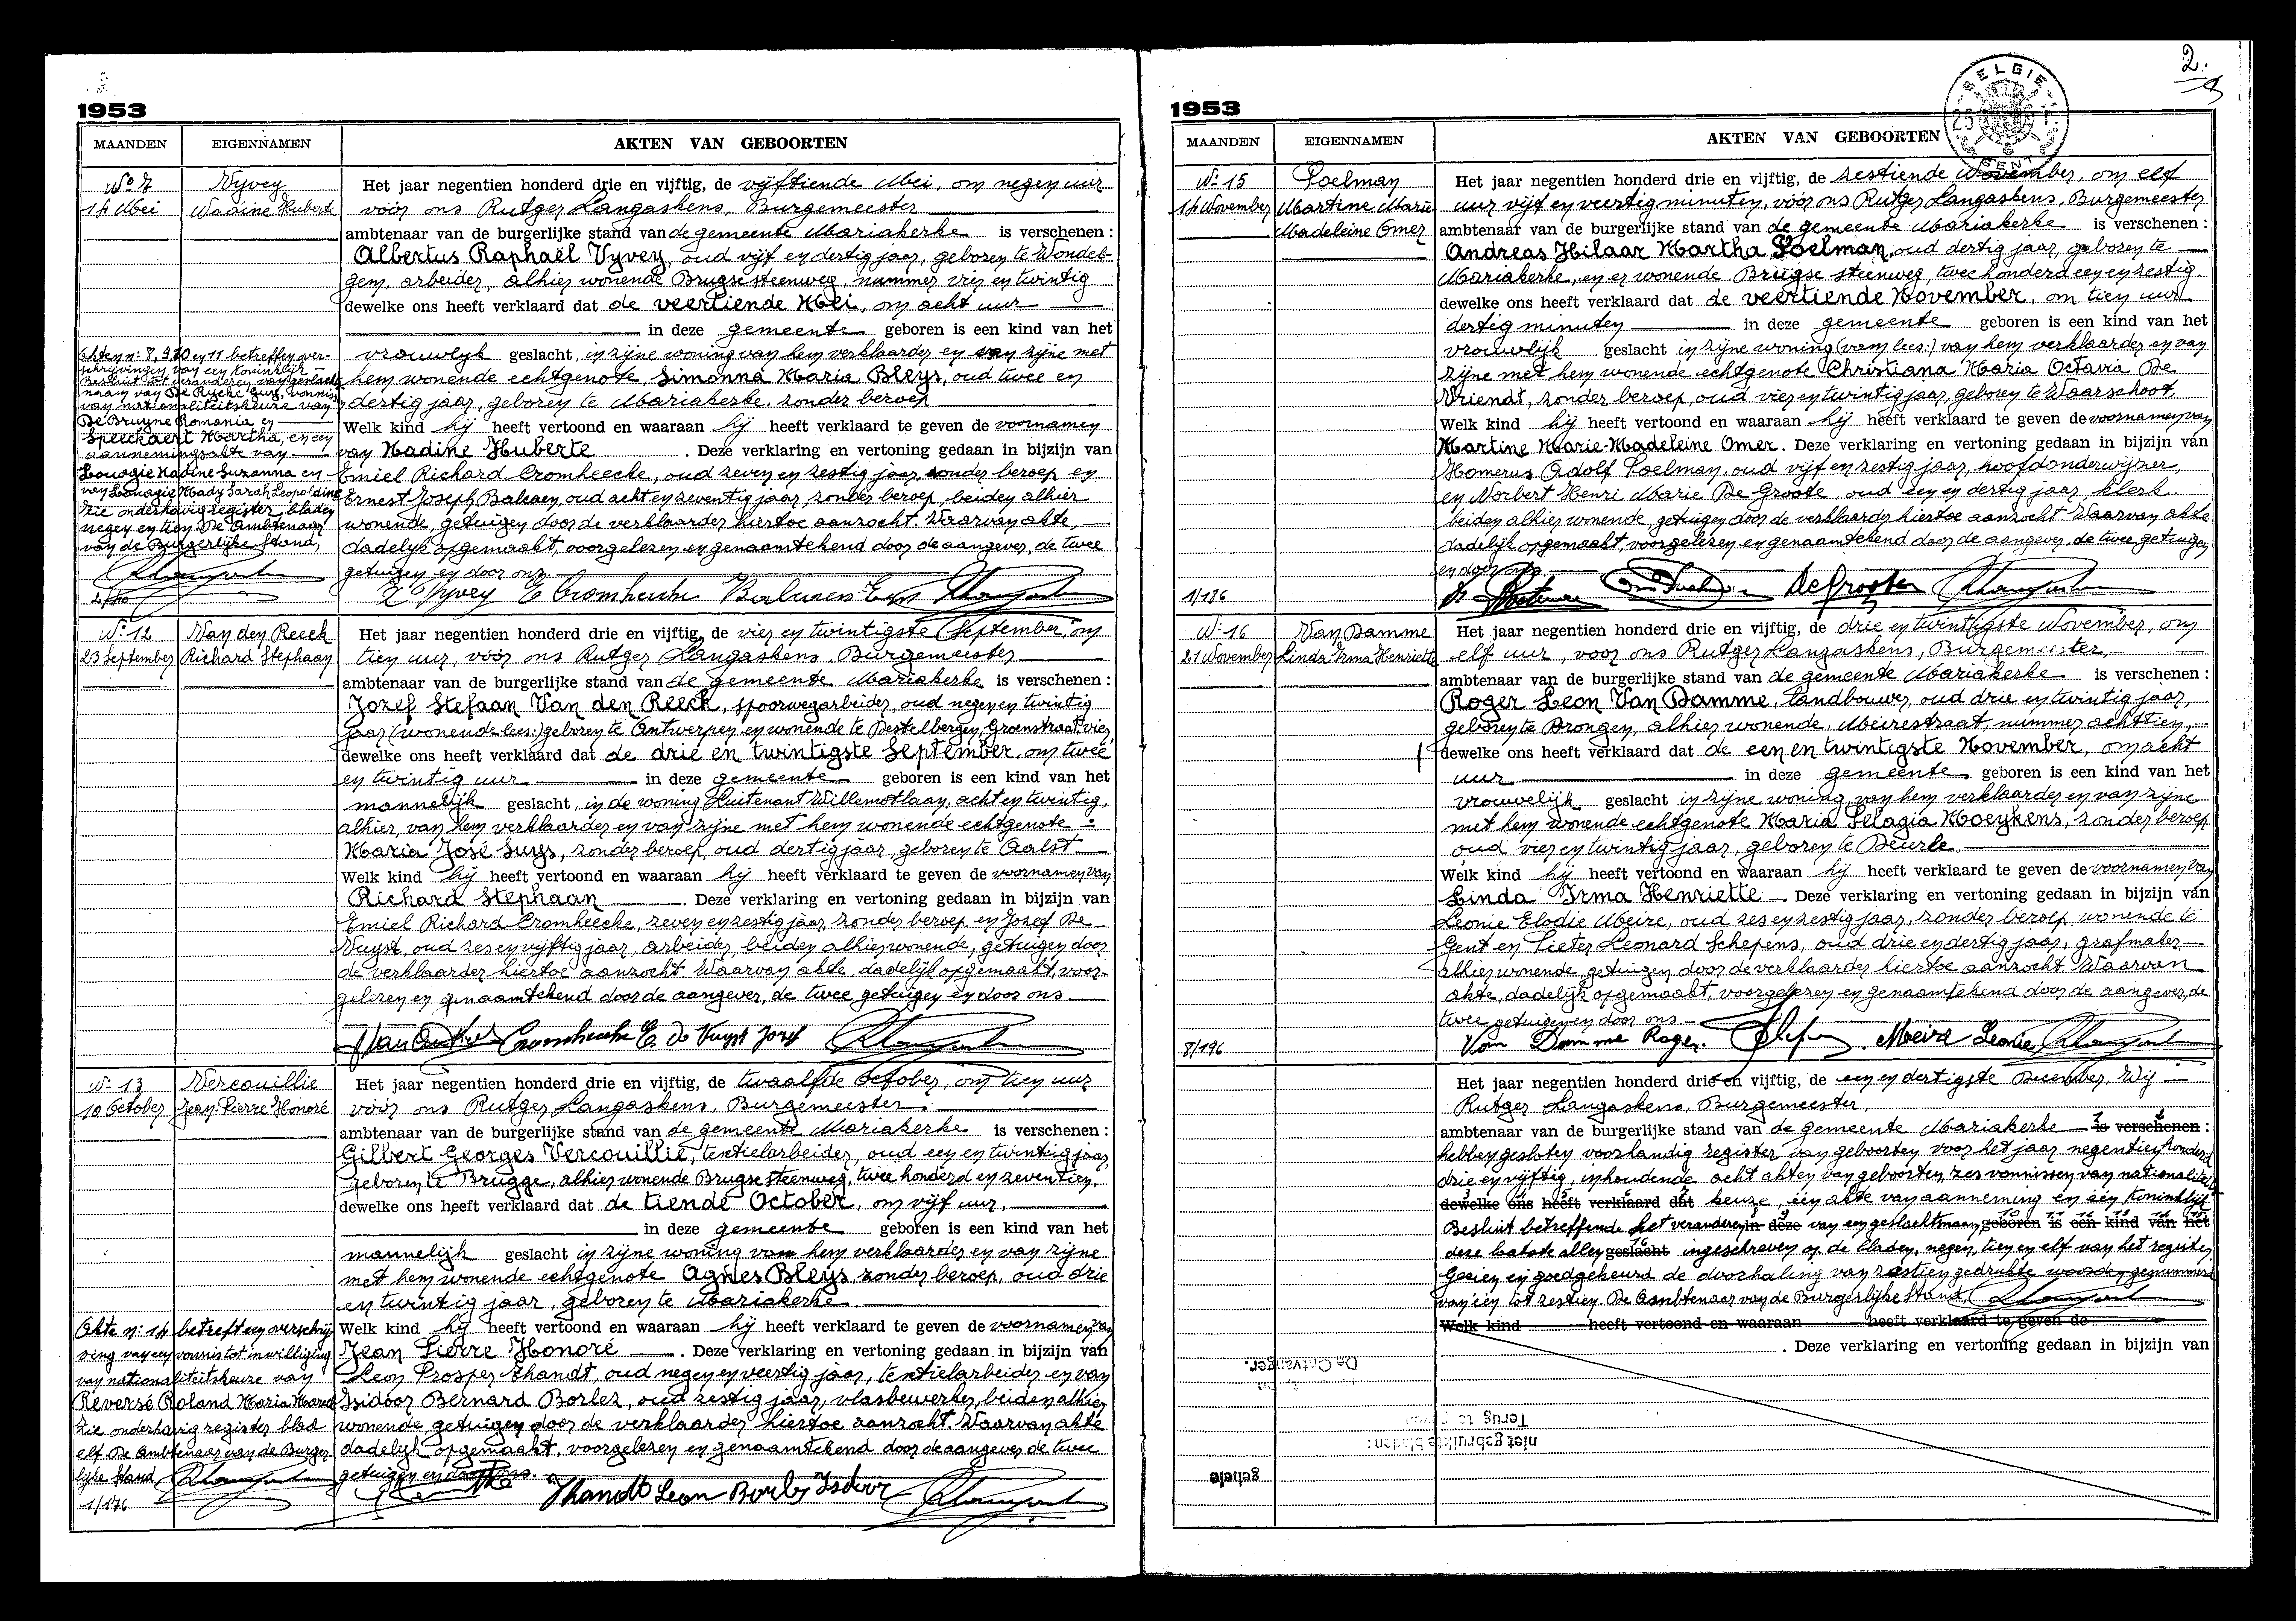 1953
MAANDEN EIGENNAMEN AKTEN VAN GEBOORTEN
No 7
14 Mei
Vyvey
Nadine Huberte
Het jaar negentien honderd drie en vijftig, de vijftiende Mei, om negen uur
vóór ons Rutger Langaskens, Burgemeester
ambtenaar van de burgerlijke stand van de gemeente Mariakerke is verschenen :
Albertus Raphaël Vyvey, oud vijf en dertig jaar, geboren te Wondel-
gem, arbeider, alhier wonende Brugse steenweg, nummer vier en twintig
dewelke ons heeft verklaard dat de veertiende Mei, om acht uur
in deze gemeente geboren is een kind van het
vrouwelijk geslacht, in zijne woning van hem verklaarder en van zijne met
hem wonende echtgenote, Simonna Maria Bleys, oud twee en
dertig jaar, geboren te Mariakerke, zonder beroep
Welk kind hij heeft vertoond en waaraan hij heeft verklaard te geven de voornamen
van Nadine Huberte . Deze verklaring en vertoning gedaan in bijzijn van
Emiel Richard Cromheecke, oud zeven en zestig jaar, zonder beroep en
Ernest Joseph Balcaen, oud acht en zeventig jaar, zonder beroep, beiden alhier
wonende, getuigen door de verklaarder hiertoe aanzocht. Waarvan akte,
dadelijk opgemaakt, voorgelezen en genaamtekend door de aangever, de twee
getuigen en door ons.
Akten nrs 8, 9, 10 en 11 betreffen over-
schrijvingen van een Koninklijk
besluit tot veranderen van geslachts-
naam van De Rijcke Guy, vonnis
van nationaliteitskeuze van
De Bruyne Romania en
Speeckaert Martha, en een
aannemingsakte van
Louagie Nadine Suzanna en
van Louagie Mady Sarah Leopoldine
zie onderhavig register, bladen
negen en tien De Ambtenaar
van de Burgerlijke Stand,
Vyvey E Cromheecke Balcaen
No 12
23 September
Van den Reeck
Richard Stephaan
Het jaar negentien honderd drie en vijftig, de vier en twintigste September, om
tien uur, vóór ons Rutger Langaskens, Burgemeester
ambtenaar van de burgerlijke stand van de gemeente Mariakerke is verschenen :
Jozef Stefaan Van den Reeck, spoorwegarbeider, oud negen en twintig
jaar (wonende lees:) geboren te Antwerpen en wonende te Destelbergen, Groenstraat, vier,
dewelke ons heeft verklaard dat de drie en twintigste September, om twee
en twintig uur in deze gemeente geboren is een kind van het
mannelijk geslacht, in de woning Luitenant Willemotlaan, acht en twintig,
alhier, van hem verklaarder en van zijne met hem wonende echtgenote
Maria José Suys, zonder beroep, oud dertig jaar, geboren te Aalst
Welk kind hij heeft vertoond en waaraan hij heeft verklaard te geven de voornamen van
Richard Stephaan . Deze verklaring en vertoning gedaan in bijzijn van
Emiel Richard Cromheecke, zeven en zestig jaar, zonder beroep en Jozef De
Vuyst, oud zes en vijftig jaar, arbeider, beiden alhier wonende, getuigen door
de verklaarder hiertoe aanzocht. Waarvan akte, dadelijk opgemaakt, voor-
gelezen en genaamtekend door de aangever, de twee getuigen en door ons
Cromheecke E. de Vuyst Jozef
No 13
10 October
Vercouillie
Jean-Pierre Honoré
Het jaar negentien honderd drie en vijftig, de twaalfde October, om tien uur
vóór ons Rutger Langaskens, Burgemeester
ambtenaar van de burgerlijke stand van de gemeente Mariakerke is verschenen :
Gilbert Georges Vercouillie, textielarbeider, oud een en twintig jaar,
geboren te Brugge, alhier wonende Brugse steenweg, twee honderd en zeventien,
dewelke ons heeft verklaard dat de tiende October, om vijf uur,
in deze gemeente geboren is een kind van het
mannelijk geslacht in zijne woning van hem verklaarder en van zijne
met hem wonende echtgenote Agnes Bleys, zonder beroep, oud drie
en twintig jaar, geboren te Mariakerke
Welk kind hij heeft vertoond en waaraan hij heeft verklaard te geven de voornamen van
Jean Pierre Honoré . Deze verklaring en vertoning gedaan in bijzijn van
Leon Prosper Thandt, oud negen en veertig jaar, textielarbeider en van
Isidoor Bernard Borlez, oud zestig jaar, vlasbewerker, beiden alhier
wonende, getuigen door de verklaarder hiertoe aanzocht. Waarvan akte
dadelijk opgemaakt, voorgelezen en genaamtekend door de aangever, de twee
getuigen en door ons.
Akte nr 14 betreft een overschrij-
ving van een vonnis tot inwilliging
van nationaliteitskeuze van
Reversé Roland Maria Marcel
zie onderhavig register blad
elf. De Ambtenaar van de Burger-
lijke Stand,
1/176
Thandt Leon Isidoor
1953
2.
BELGIE
GENT
MAANDEN EIGENNAMEN AKTEN VAN GEBOORTEN
No 15
14 November
Poelman
Martine Marie
Madeleine Omer
Het jaar negentien honderd drie en vijftig, de zestiende November, om elf
uur vijf en veertig minuten, vóór ons Rutger Langaskens, Burgemeester
ambtenaar van de burgerlijke stand van de gemeente Mariakerke is verschenen :
Andreas Hilaar Martha Poelman, oud dertig jaar, geboren te
Mariakerke, en er wonende Brugse steenweg, twee honderd een en zestig
dewelke ons heeft verklaard dat de veertiende November, om tien uur
dertig minuten in deze gemeente geboren is een kind van het
vrouwelijk geslacht in zijne woning (vam lees:) van hem verklaarder en van
zijne met hem wonende echtgenote Christiana Maria Octavia De
Vriendt, zonder beroep, oud vier en twintig jaar, geboren te Waarschoot,
Welk kind hij heeft vertoond en waaraan hij heeft verklaard te geven de voornamen van
Martine Marie-Madeleine Omer. Deze verklaring en vertoning gedaan in bijzijn van
Homerus Adolf Poelman, oud vijf en zestig jaar, hoofdonderwijzer,
en Norbert Henri Marie De Groote, oud een en dertig jaar, klerk.
beiden alhier wonende, getuigen door de verklaarder hiertoe aanzocht. Waarvan akte
dadelijk opgemaakt, voorgelezen en genaamtekend door de aangever, de twee getuigen
en door ons.
1/186
No 16
21 November
Van Damme
Linda Irma Henriette
Het jaar negentien honderd drie en vijftig, de drie en twintigste November, om
elf uur, voor ons Rutger Langaskens, Burgemeester,
ambtenaar van de burgerlijke stand van de gemeente Mariakerke is verschenen :
Roger Leon Van Damme, landbouwer, oud drie en twintig jaar,
geboren te Drongen, alhier wonende, Meirestraat, nummer achttien,
dewelke ons heeft verklaard dat de een en twintigste November, om acht
uur in deze gemeente geboren is een kind van het
vrouwelijk geslacht in zijne woning, van hem verklaarder en van zijne
met hem wonende echtgenote Maria Pelagia Moeykens, zonder beroep
oud vier en twintig jaar, geboren te Deurle.
Welk kind hij heeft vertoond en waaraan hij heeft verklaard te geven de voornamen van
Linda Irma Henriette . Deze verklaring en vertoning gedaan in bijzijn van
Leonie Elodie Meire, oud zes en zestig jaar, zonder beroep, wonende te
Gent en Pieter Leonard Schepens, oud drie en dertig jaar, grafmaker
alhier wonende, getuigen door de verklaarder hiertoe aanzocht. Waarvan
akte, dadelijk opgemaakt, voorgelezen en genaamtekend door de aangever, de
twee getuigen en door ons
8/196
Van Damme Roger. Meire Leonie
Het jaar negentien honderd drie en vijftig, de een en dertigste December, Wij
Rutger Langaskens, Burgemeester,
ambtenaar van de burgerlijke stand van de gemeente Mariakerke is verschenen :
hebben gesloten voorhandig register van geboorten voor het jaar negentien honderd
drie en vijftig, inhoudende acht akten van geboorten, zes vonnissen van nationaliteits-
dewelke ons heeft verklaard dat keuze, één akte van aanneming en één Koninklijk
Besluit betreffende het veranderen in deze van een geslachtsnaam, geboren is een kind van het
deze laatste allen geslacht ingeschreven op de bladen, negen, tien en elf van het register
Gezien en goedgekeurd de doorhaling van zestien gedrukte woorden, genummerd
van één tot zestien. De Ambtenaar van de Burgerlijke Stand,
Welk kind heeft vertoond en waaraan heeft verklaard te geven de
. Deze verklaring en vertoning gedaan in bijzijn van
De Ontvanger.
niet gebruikte bladen :
gehele